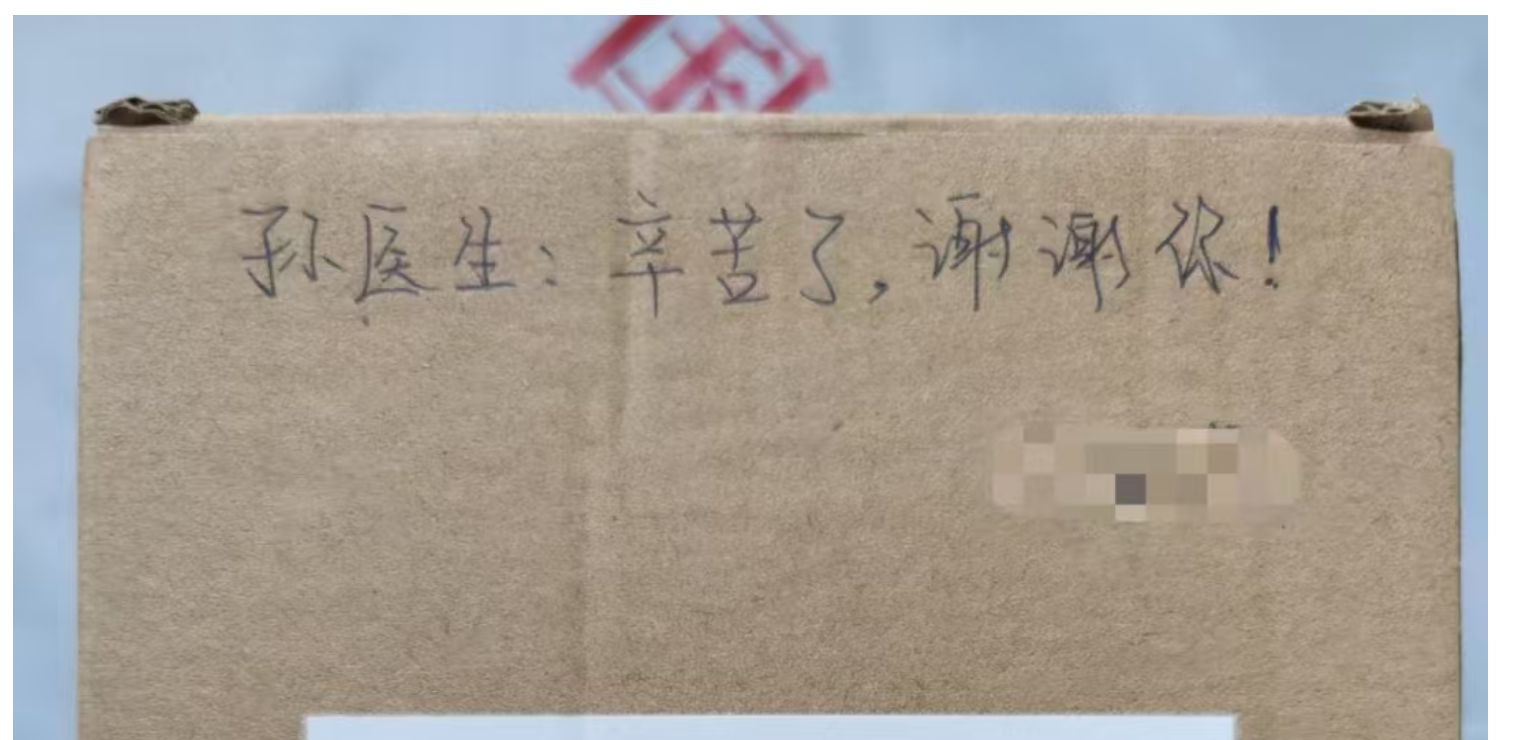 孙医生：辛苦了，谢谢你！